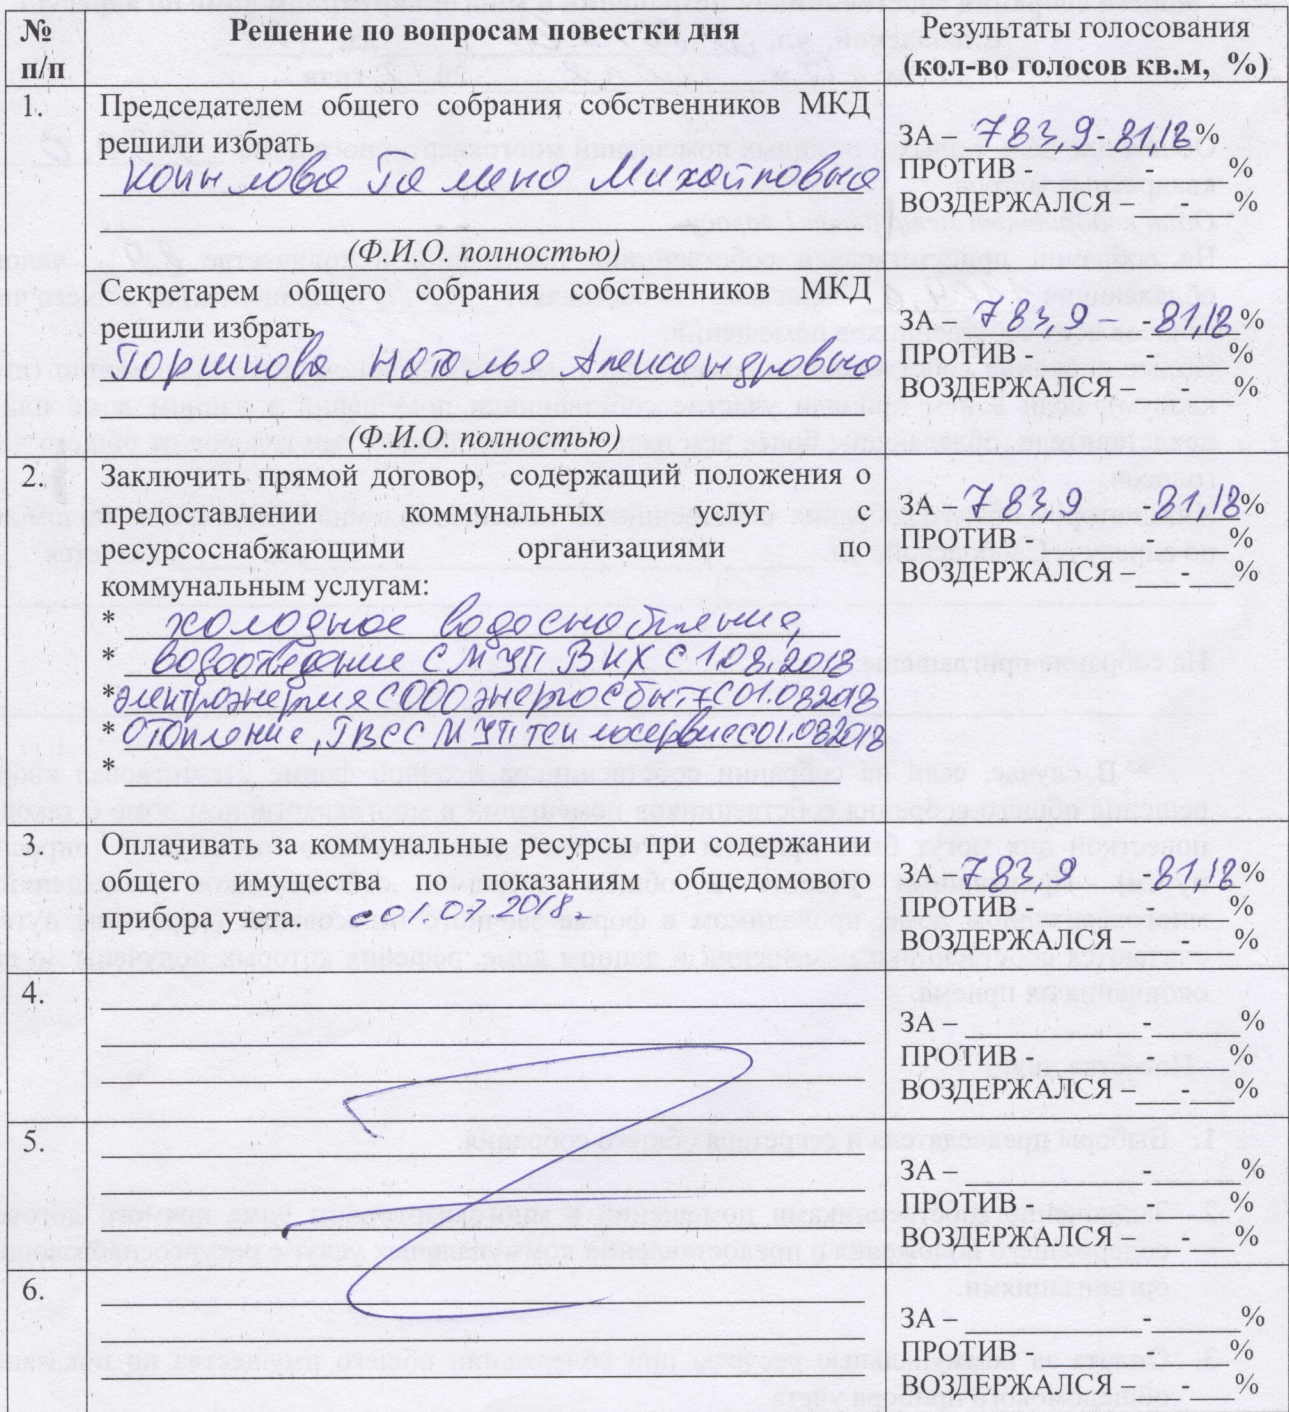 № п/п
Решение по вопросам повестки дня
Результаты голосования
(кол-во голосов кв.м, %)
1.
Председателем общего собрания собственников МКД
решили избрать
Михайловна
(Ф.И.О. полностью)
ЗА – 783,9 - 81,18%
ПРОТИВ - - %
ВОЗДЕРЖАЛСЯ – - %
Секретарем общего собрания собственников МКД
решили избрать
Паршкова Наталья Александровна
(Ф.И.О. полностью)
ЗА – 783,9 – - 81,18%
ПРОТИВ - - %
ВОЗДЕРЖАЛСЯ – - %
2.
Заключить прямой договор, содержащий положения о
предоставлении коммунальных услуг с
ресурсоснабжающими организациями по
коммунальным услугам:
* холодное водоснабжение,
* водоотведение с МУП ВКХ с 1.08.2018
* электроэнергия с ООО энергосбыт с 01.08.2018
* отопление, ГВС с МУП теплосервис с 01.08.2018
*
ЗА – 783,9 - 81,18%
ПРОТИВ - - %
ВОЗДЕРЖАЛСЯ – - %
3.
Оплачивать за коммунальные ресурсы при содержании
общего имущества по показаниям общедомового
прибора учета. с 01.07.2018.
ЗА – 783,9 - 81,18%
ПРОТИВ - - %
ВОЗДЕРЖАЛСЯ – - %
4.
ЗА – - %
ПРОТИВ - - %
ВОЗДЕРЖАЛСЯ – - %
5.
ЗА – - %
ПРОТИВ - - %
ВОЗДЕРЖАЛСЯ – - %
6.
ЗА – - %
ПРОТИВ - - %
ВОЗДЕРЖАЛСЯ – - %